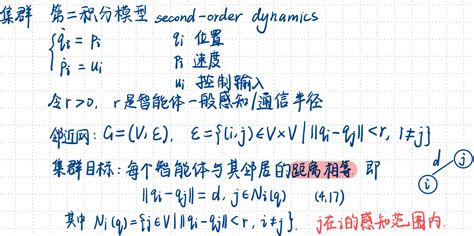 集群 第二积分模型 second-order dynamics
{ q̇ᵢ = pᵢ qᵢ 位置
ṗᵢ = uᵢ pᵢ 速度
uᵢ 控制输入
令 r>0, r是智能体一般感知/通信半径
邻近网: G=(V,ε), ε={(i,j)∈V×V | ||qᵢ-qⱼ||<r, i≠j}
集群目标: 每个智能体与其邻居的距离相等 即
||qᵢ-qⱼ|| = d, j∈Nᵢ(q) (4.17)
d j i
其中 Nᵢ(q)={j∈V | ||qᵢ-qⱼ||<r, i≠j}. j在i的感知范围内.